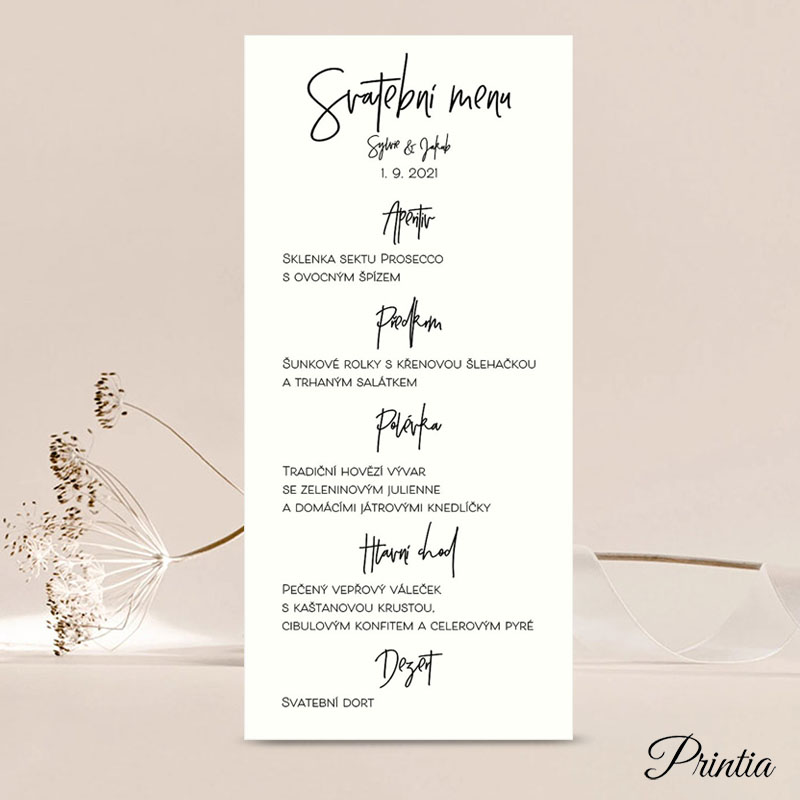 Svatební menu
Sylvie & Jakub
1. 9. 2021
Aperitiv
Sklenka sektu Prosecco
s ovocným špízem
Předkrm
Šunkové rolky s křenovou šlehačkou
a trhaným salátkem
Polévka
Tradiční hovězí vývar
se zeleninovým julienne
a domácími játrovými knedlíčky
Hlavní chod
Pečený vepřový váleček
s kaštanovou krustou,
cibulovým konfitem a celerovým pyré
Dezert
Svatební dort
Printia